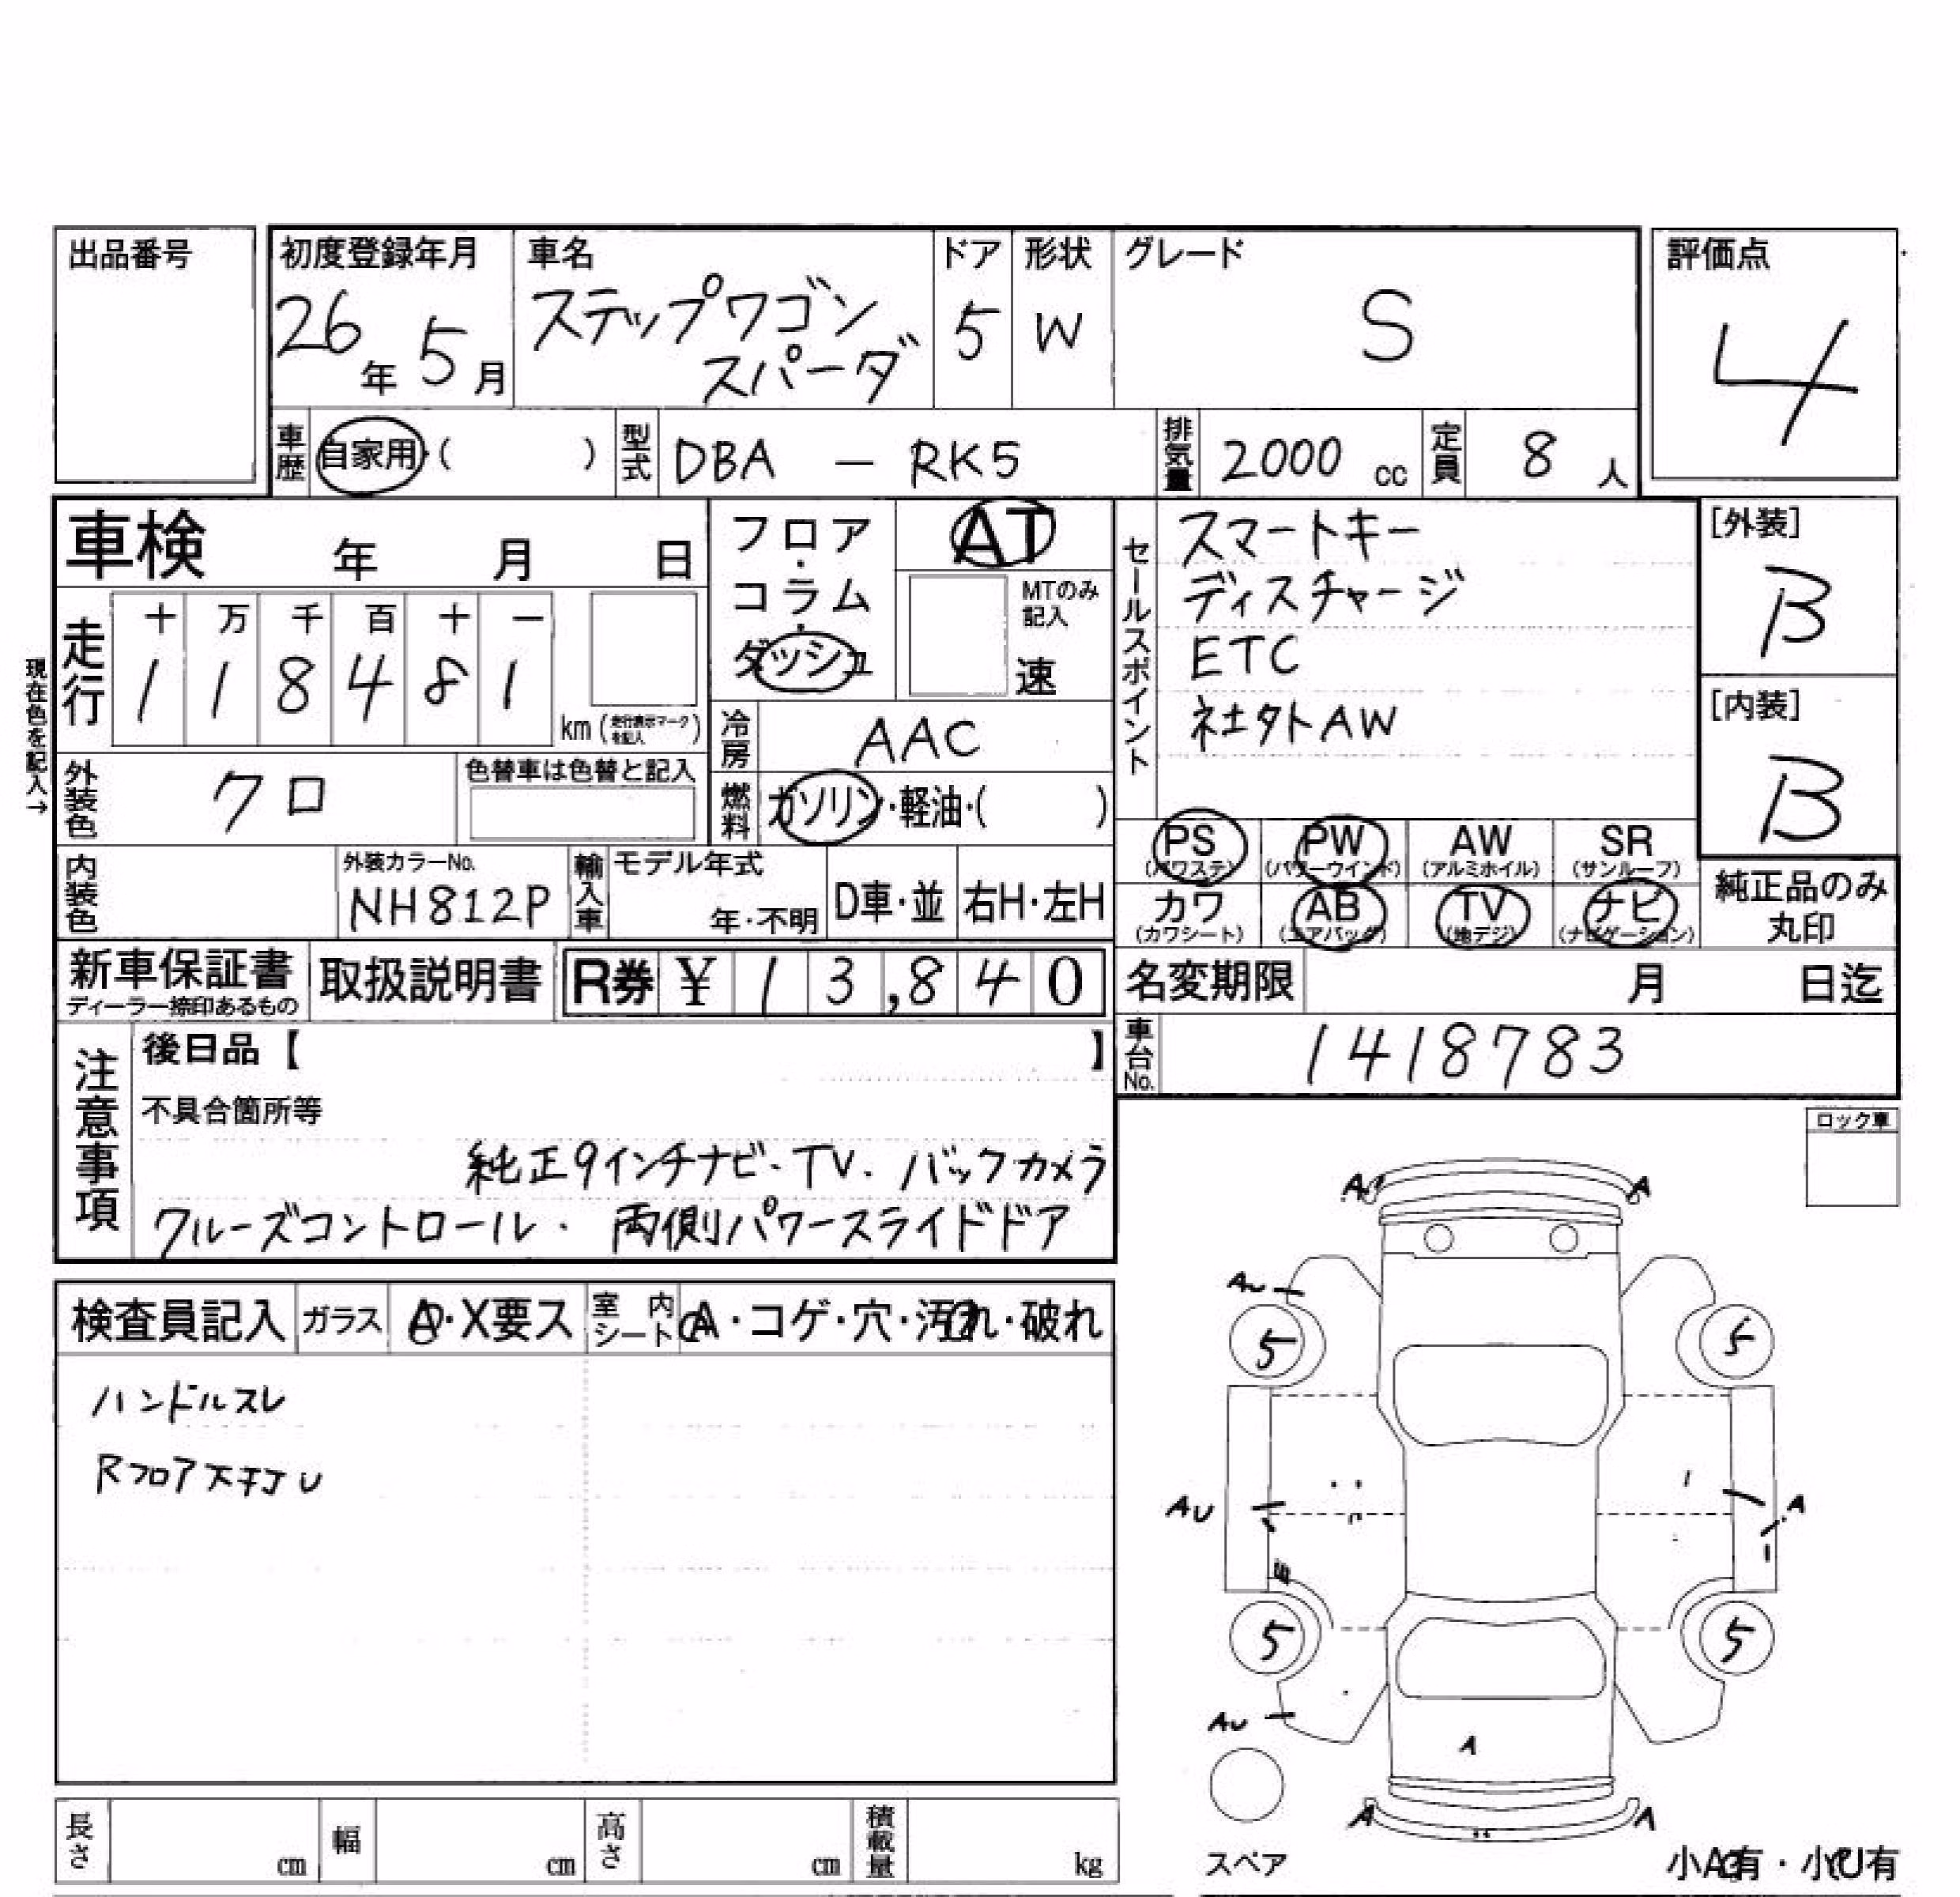 出品番号
初度登録年月
26年 5月
車名
ステップワゴン
スパーダ
ドア
5
形状
W
グレード
S
評価点
4
車歴 自家用・( )
型式 DBA − RK5
排気量 2000 cc
定員 8 人
車検 年 月 日
フロア・コラム・ダッシュ
AT
MTのみ記入
速
セールスポイント
スマートキー
ディスチャージ
ETC
社外AW
[外装]
B
[内装]
B
現在色を記入→
走行
十 万 千 百 十 一
1 1 8 4 8 1
km (走行表示マークを記入)
冷房 AAC
燃料 ガソリン・軽油・( )
外装色 クロ
色替車は色替と記入
PS (パワステ)
PW (パワーウインド)
AW (アルミホイル)
SR (サンルーフ)
カワ (カワシート)
AB (エアバッグ)
TV (地デジ)
ナビ (ナビゲーション)
純正品のみ
丸印
内装色
外装カラーNo.
NH812P
輸入車
モデル年式
年・不明
D車・並
右H・左H
新車保証書
ディーラー捺印あるもの
取扱説明書
R券 ¥ 1 3 , 8 4 0
名変期限 月 日迄
車台No. 1418783
注意事項
後日品【 】
不具合箇所等
純正9インチナビ・TV・バックカメラ
クルーズコントロール・両側パワースライドドア
ロック車
検査員記入
ガラス A・X要ス
室内シート A・コゲ・穴・汚れ・破れ
ハンドルスレ
Rフロア下キズU
A A
AU
5 5
AU A
5 5
AU
A
A A
スペア
長さ cm
幅 cm
高さ cm
積載量 kg